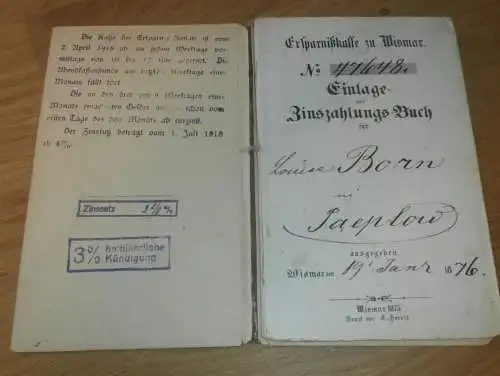 Die Kasse der Ersparniß-Anstalt ist vom
2. April 1918 ab an jedem Werktage vor-
mittags von bis 12 Uhr geöffnet. Die
Abendkassenstunde am letzten Werktage eines
Monats fällt fort.
Die an den drei ersten Werktagen eines
Monats Gelder werden schon vom
ersten Tage des Monats ab verzinst.
Der Zinsfuß beträgt vom 1. Juli 1918
ab
Zinssatz
3% halbjährliche
Kündigung
Ersparnißkasse zu Wismar.
No 47648.
Einlage-
und
Zinszahlungs-Buch
für
Louise Born
in
Jaeplow
ausgegeben
Wismar am 19t Janr 1876.
Wismar 1875
Druck von